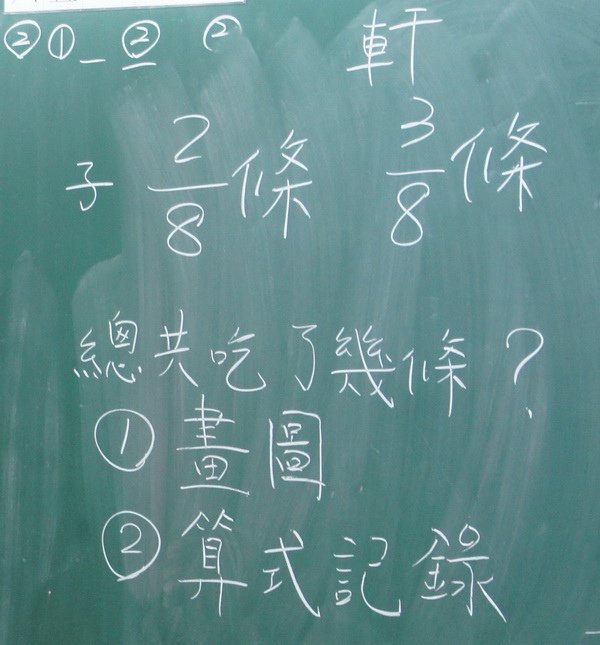 ② ① _ ② ②
軒
子 2/8 條 3/8 條
總共吃了幾條?
① 畫圖
② 算式記錄